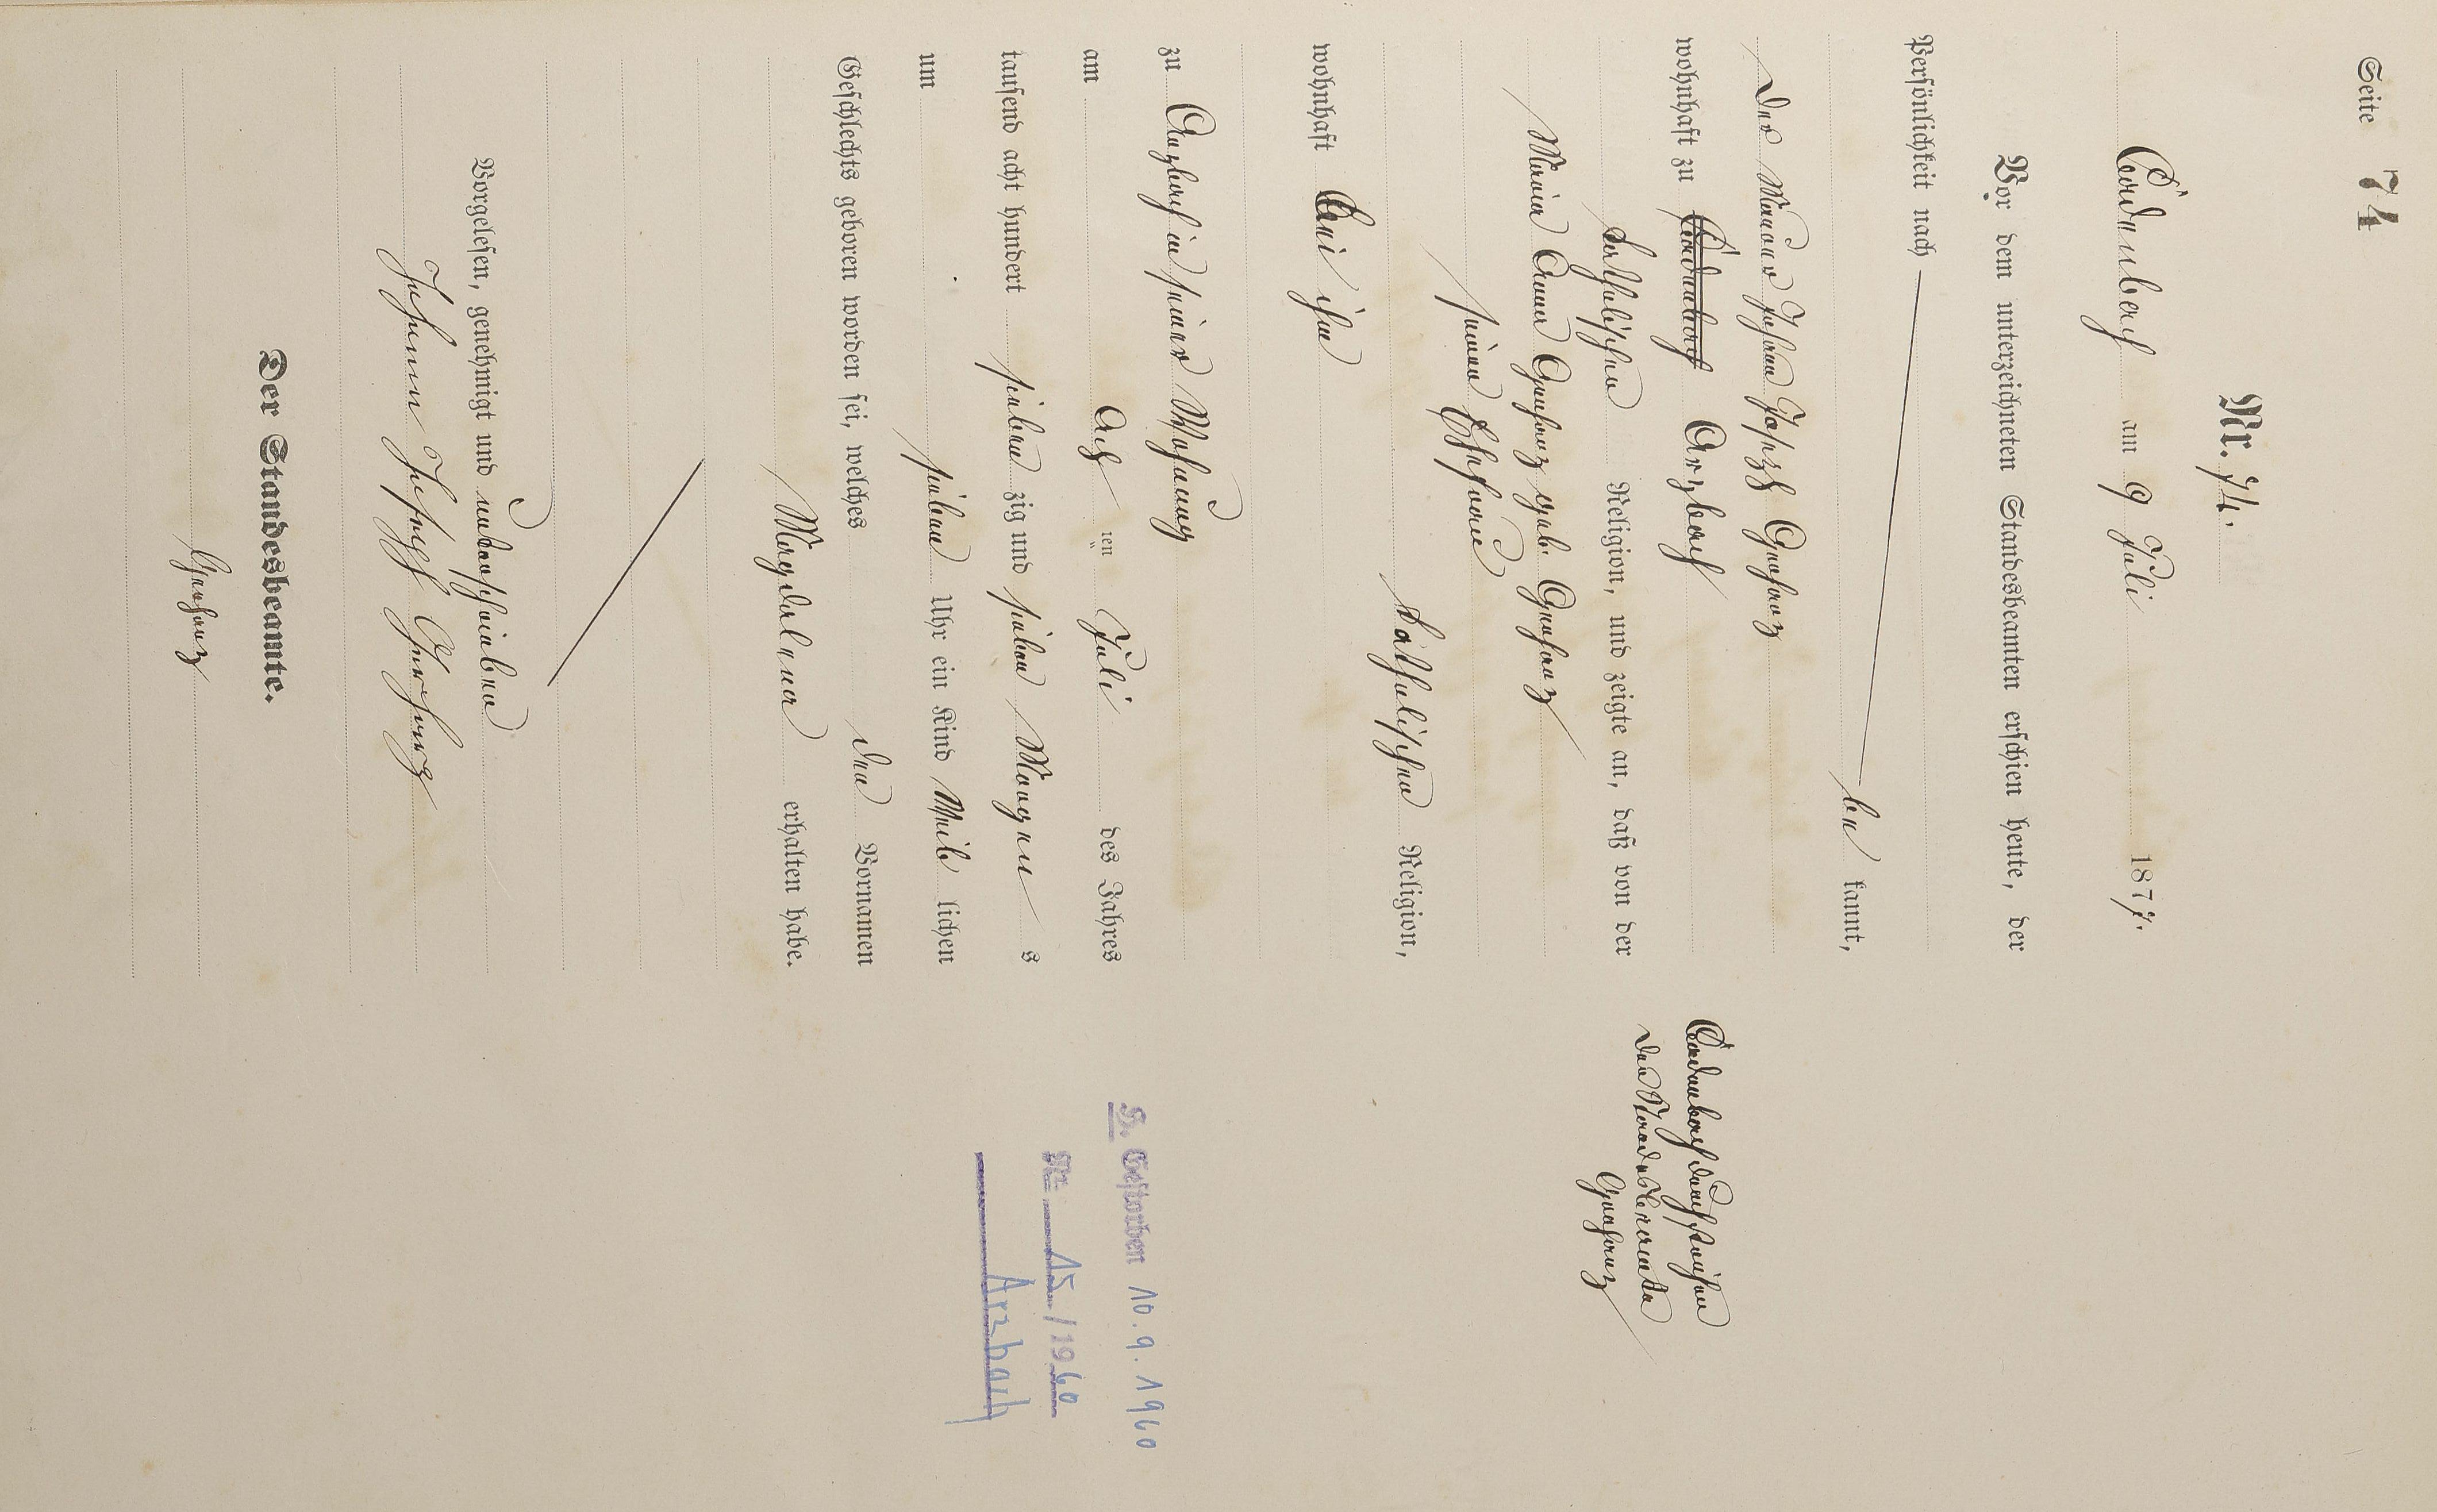 Seite 74
Nr. 74.
Cadenbach am 9 Juli 1877.
Vor dem unterzeichneten Standesbeamten erschien heute, der
Persönlichkeit nach
be kannt,
der Maurer Johann Joseph Gerharz
wohnhaft zu Cadenbach Arzbach
katholischer Religion, und zeigte an, daß von der
Maria Anna Gerharz geb. Gerharz
seiner Ehefrau
katholischer Religion,
wohnhaft bei ihm
zu Arzbach in seiner Wohnung
am acht ten Juli des Jahres
tausend acht hundert sieben zig und sieben Morgen s
um sieben Uhr ein Kind weib lichen
Geschlechts geboren worden sei, welches den Vornamen
Magdalena erhalten habe.
Vorgelesen, genehmigt und unterschrieben
Johann Joseph Gerharz
Der Standesbeamte.
Gerharz
Cadenbach durchstrichen
der Standesbeamte
Gerharz
H. Gestorben 10.9.1960
Nr. 15/1960
Arzbach